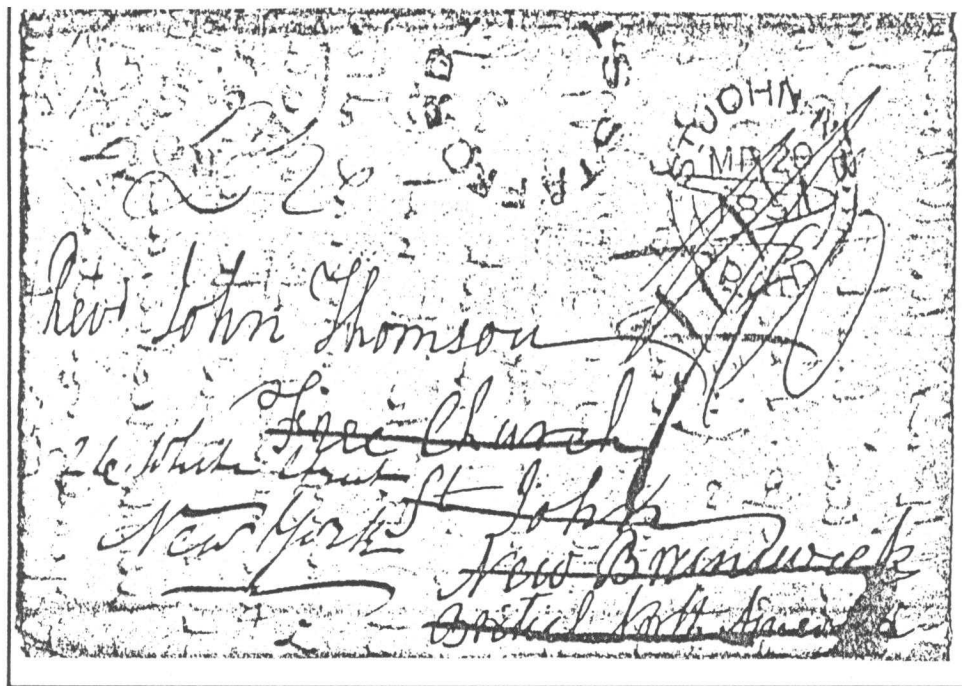 ST JOHN N.B
MR 20
PAID
Revd John Thomson
Free Church
26 White Street
St John
New York
New Brunswick
British North America